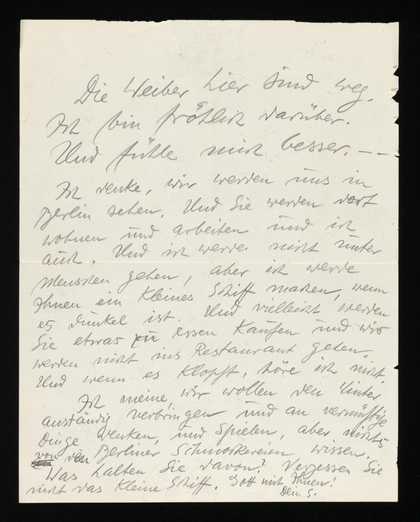 Die Weiber hier sind weg.
Ich bin fröhlich darüber.
Und fühle mich besser. — —
Ich denke, wir werden uns in
Berlin sehen. Und Sie werden dort
wohnen und arbeiten und ich
auch. Und ich werde nicht unter
Menschen gehen, aber ich werde
Ihnen ein kleines Schiff machen, wenn
es dunkel ist. Und vielleicht werden
Sie etwas zu essen kaufen und wir
werden nicht ins Restaurant gehen.
Und wenn es klopft, höre ich nicht.
Ich meine, wir wollen den Winter
anständig verbringen und an vernünftige
Dinge denken, und spielen, aber nichts
von den Berliner wissen.
Was halten Sie davon? Vergessen Sie
nicht das kleine Schiff. Gott mit Ihnen!
Dein G.